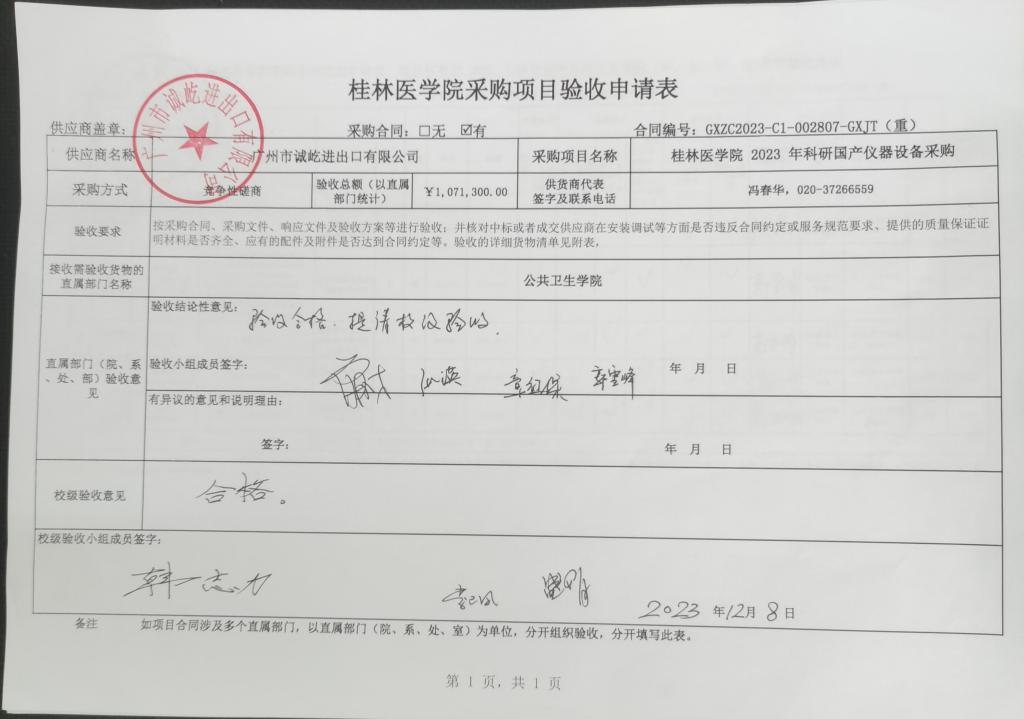 桂林医学院采购项目验收申请表
供应商盖章： 采购合同：☐无 ☑有 合同编号：GXZC2023-C1-002807-GXJT（重）
广州市诚屹进出口有限公司
供应商名称 广州市诚屹进出口有限公司 采购项目名称 桂林医学院 2023 年科研国产仪器设备采购
采购方式 竞争性磋商 验收总额（以直属部门统计） ￥1,071,300.00 供货商代表签字及联系电话 冯春华，020-37266559
验收要求
按采购合同、采购文件、响应文件及验收方案等进行验收；并核对中标或者成交供应商在安装调试等方面是否违反合同约定或服务规范要求、提供的质量保证证
明材料是否齐全、应有的配件及附件是否达到合同约定等。验收的详细货物清单见附表，
接收需验收货物的
直属部门名称
公共卫生学院
直属部门（院、系
、处、部）验收意
见
验收结论性意见：验收合格．提请校级验收．
验收小组成员签字： 年 月 日
有异议的意见和说明理由：
签字： 年 月 日
校级验收意见 合格。
校级验收小组成员签字：
韩志力
2023 年12月8日
备注 如项目合同涉及多个直属部门，以直属部门（院、系、处、室）为单位，分开组织验收，分开填写此表。
第 1 页，共 1 页